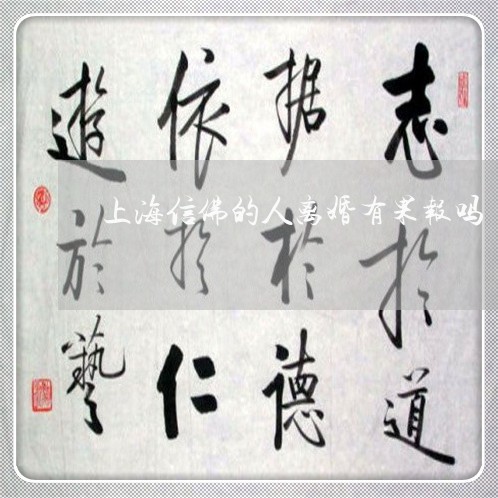 志扵道
据扵德
依扵仁
遊於藝
上海信佛的人离婚有果报吗